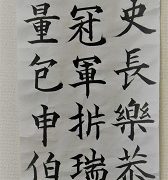 長樂恭
冠軍瑞
量包申伯